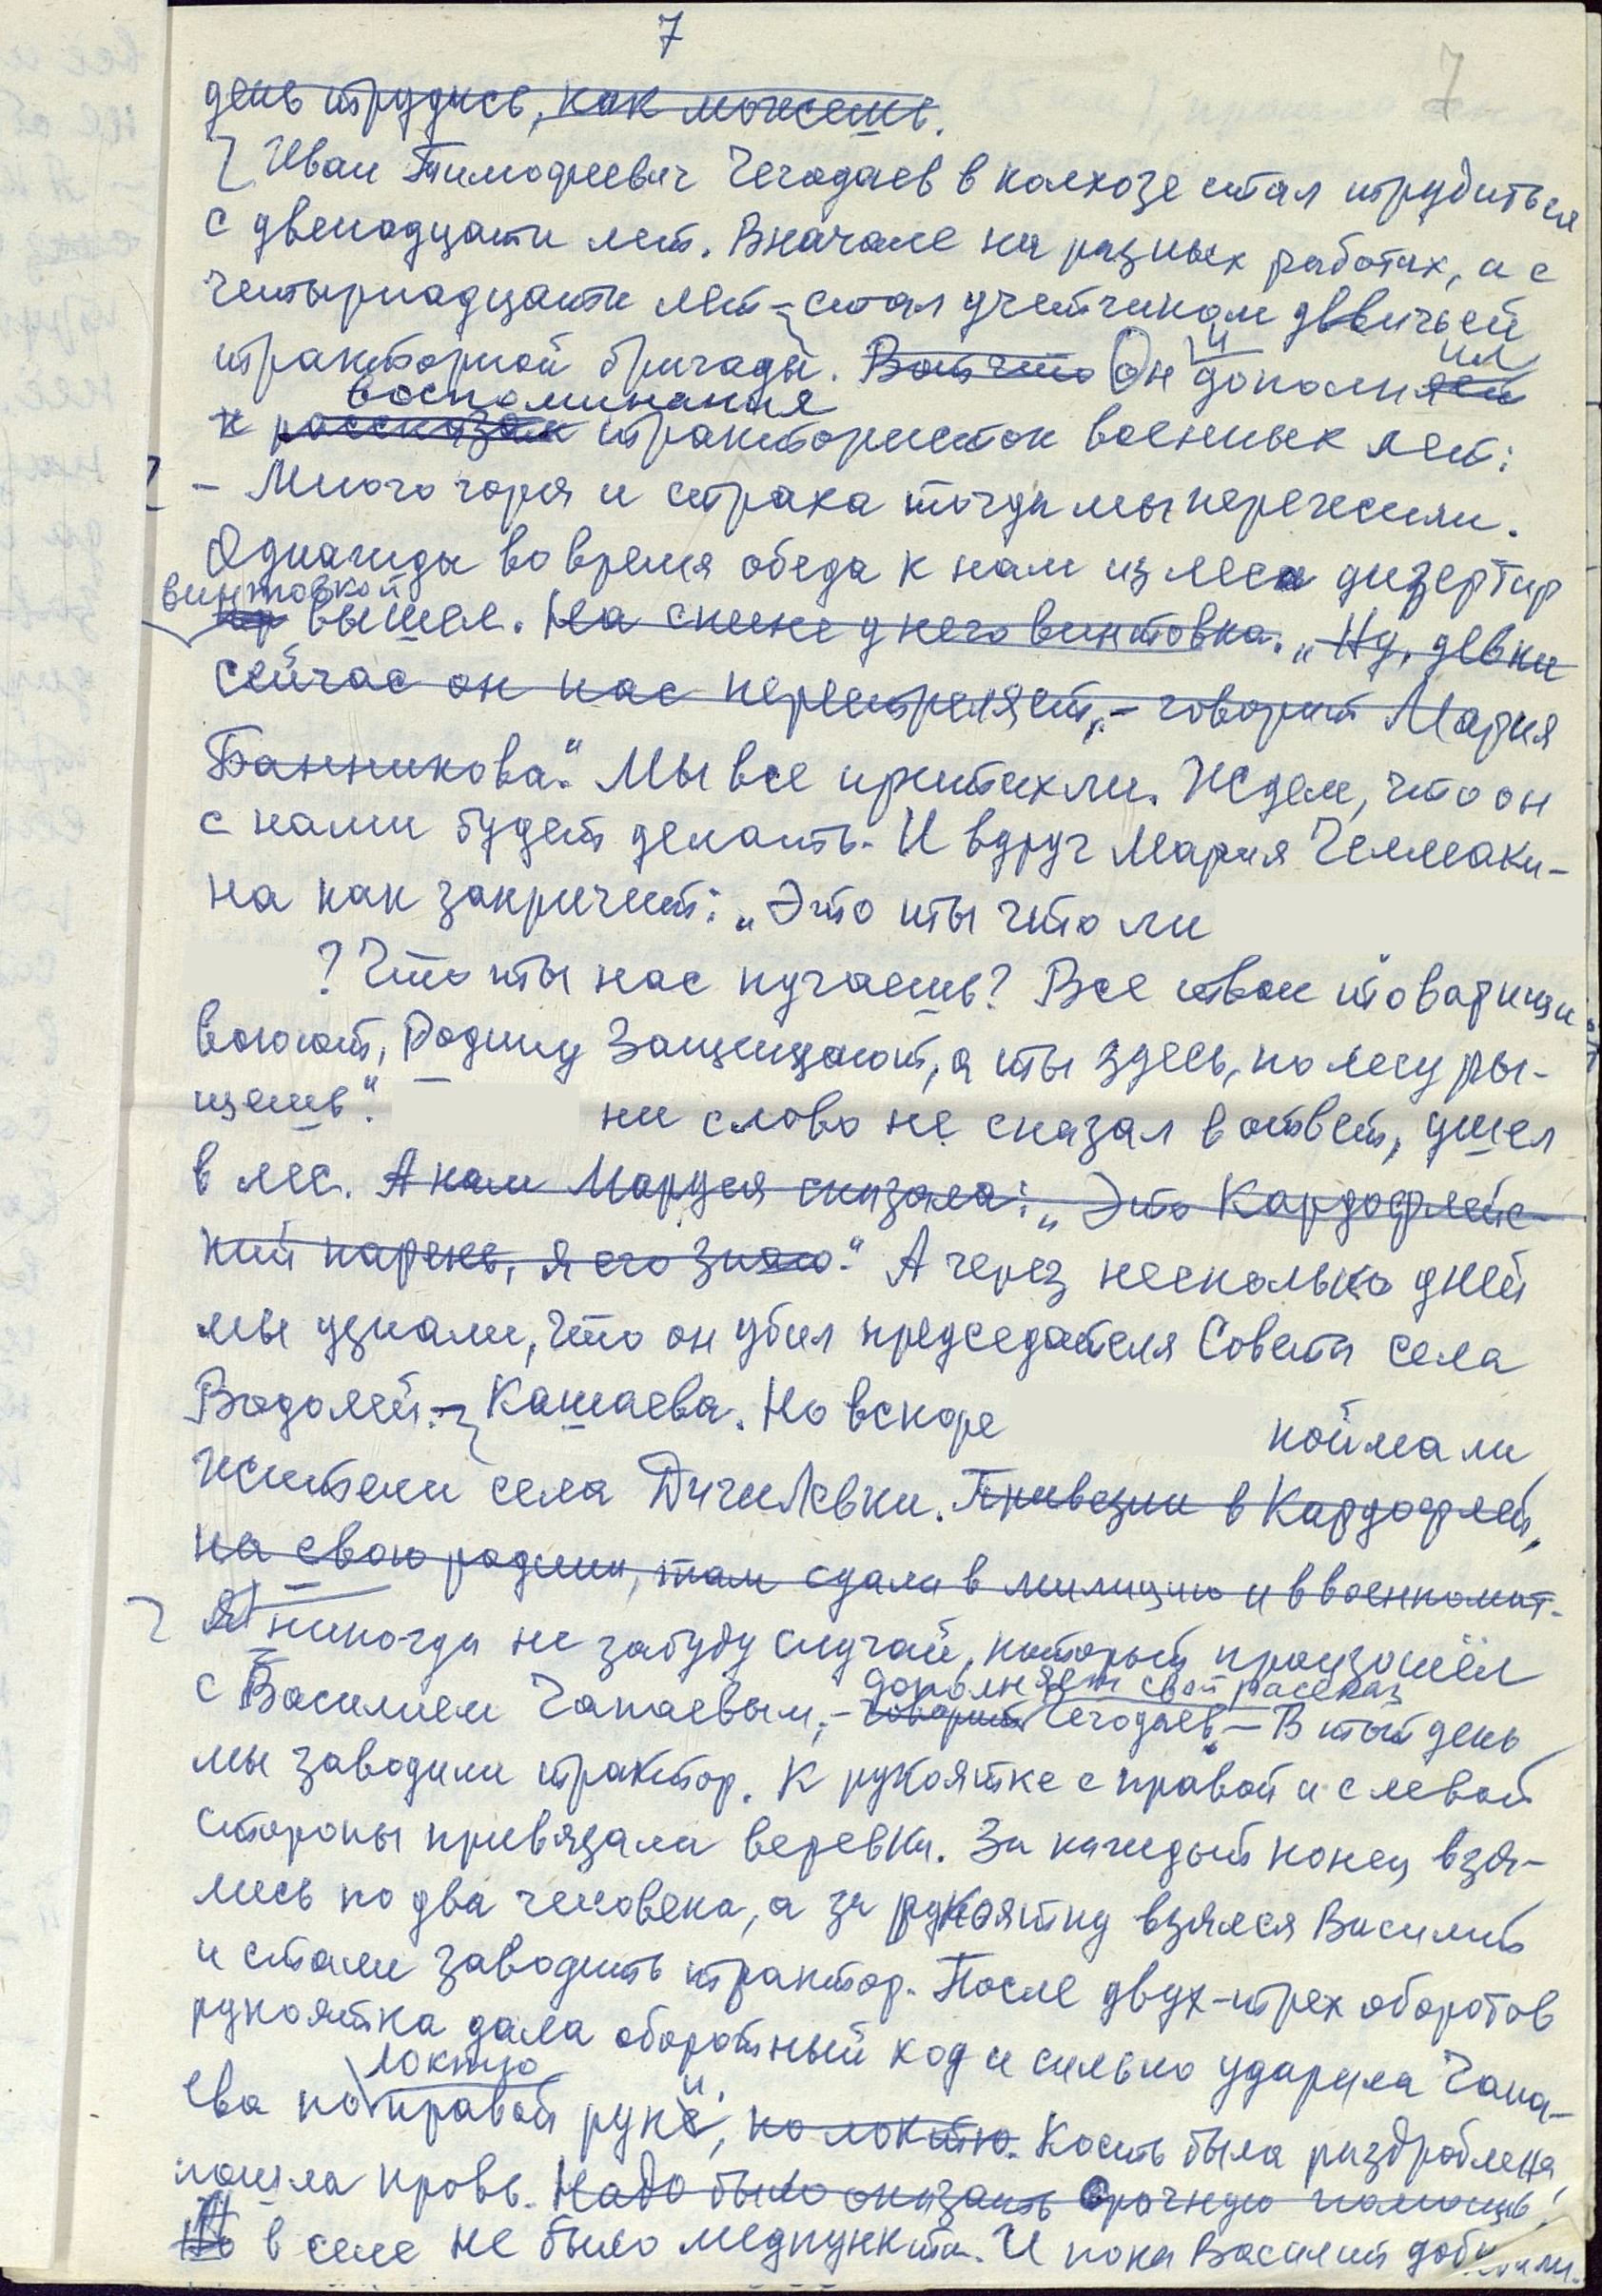 7
7
день трудись, как можешь.
Иван Тимофеевич Чегодаев в колхозе стал трудиться
с двенадцати лет. Вначале на разных работах, а с
четырнадцати лет – стал учетчиком девичьей
и ил
тракторной бригады. Вот что Он дополняей
воспоминания
к рассказам трактористок военных лет:
– Много горя и страха тогда мы пережили.
Однажды во время обеда к нам из леса дизертир
винтовкой
вышел. На спине у него винтовка. „Ну, девки
сейчас он нас перестреляет, – говорит Мария
Банникова." Мы все притихли. Ждем, что он
с нами будет делать. И вдруг Мария Челмаки-
на как закричит: „Это ты что ли
? Что ты нас пугаешь? Все твои товарищи
воюют, Родину защищают, а ты здесь, по лесу ры-
щешь".
ни слова не сказал в ответ, ушел
в лес. А нам Маруся сказала: „Это Кардофлейс-
кий парень, я его знаю." А через несколько дней
мы узнали, что он убил председателя Совета села
Водолей – Кашаева. Но вскоре поймали
жители села Дигилевки. Привезли в Кардофлей,
на свою родину, там сдали в милицию и в военкомат.
Я никогда не забуду случай, который произошёл
дополняет свой рассказ
с Василием Чапаевым, – говорит Чегодаев. – В тот день
мы заводили трактор. К рукоятке с правой и с левой
стороны привязала веревки. За каждый конец взя-
лись по два человека, а за рукоятку взялся Василий
и стали заводить трактор. После двух-трех оборотов
рукоятка дала оборотный ход и сильно ударила Чапа-
локтю
ева по правой руки, по локтю. Кость была раздроблена,
пошла кровь. Надо было оказать срочную помощь!
А
Но в селе не было медпункта. И пока Василий